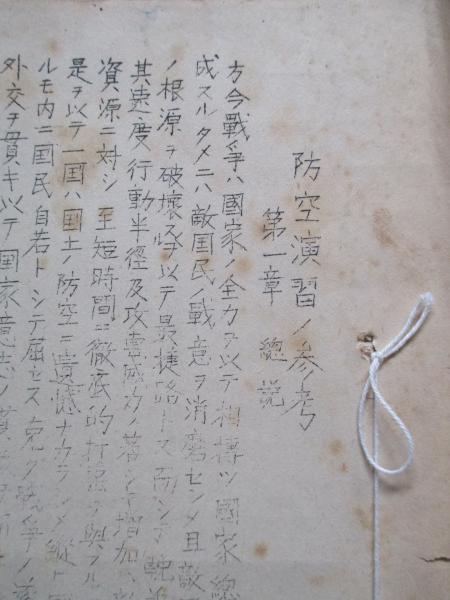 防空演習ノ参考
第一章 總説
方今戰爭ハ國家ノ全力ヲ以テ相搏ツ國家總
成スルタメニハ敵国民ノ戰意ヲ消磨セシメ且敵
ノ根源ヲ破壊スルヲ以テ最捷路トス而シテ
其速度行動半徑及攻撃威力ノ著シキ増加ハ
資源ニ対シ至短時間ニ徹底的打撃ヲ與フル
是ヲ以テ一国ハ国土ノ防空ニ遺憾ナカラシメ縦ヒ
ルモ内ニ国民自若トシテ屈セス克ク戰爭ノ
外交ヲ貫キ以テ国家意志ノ貫